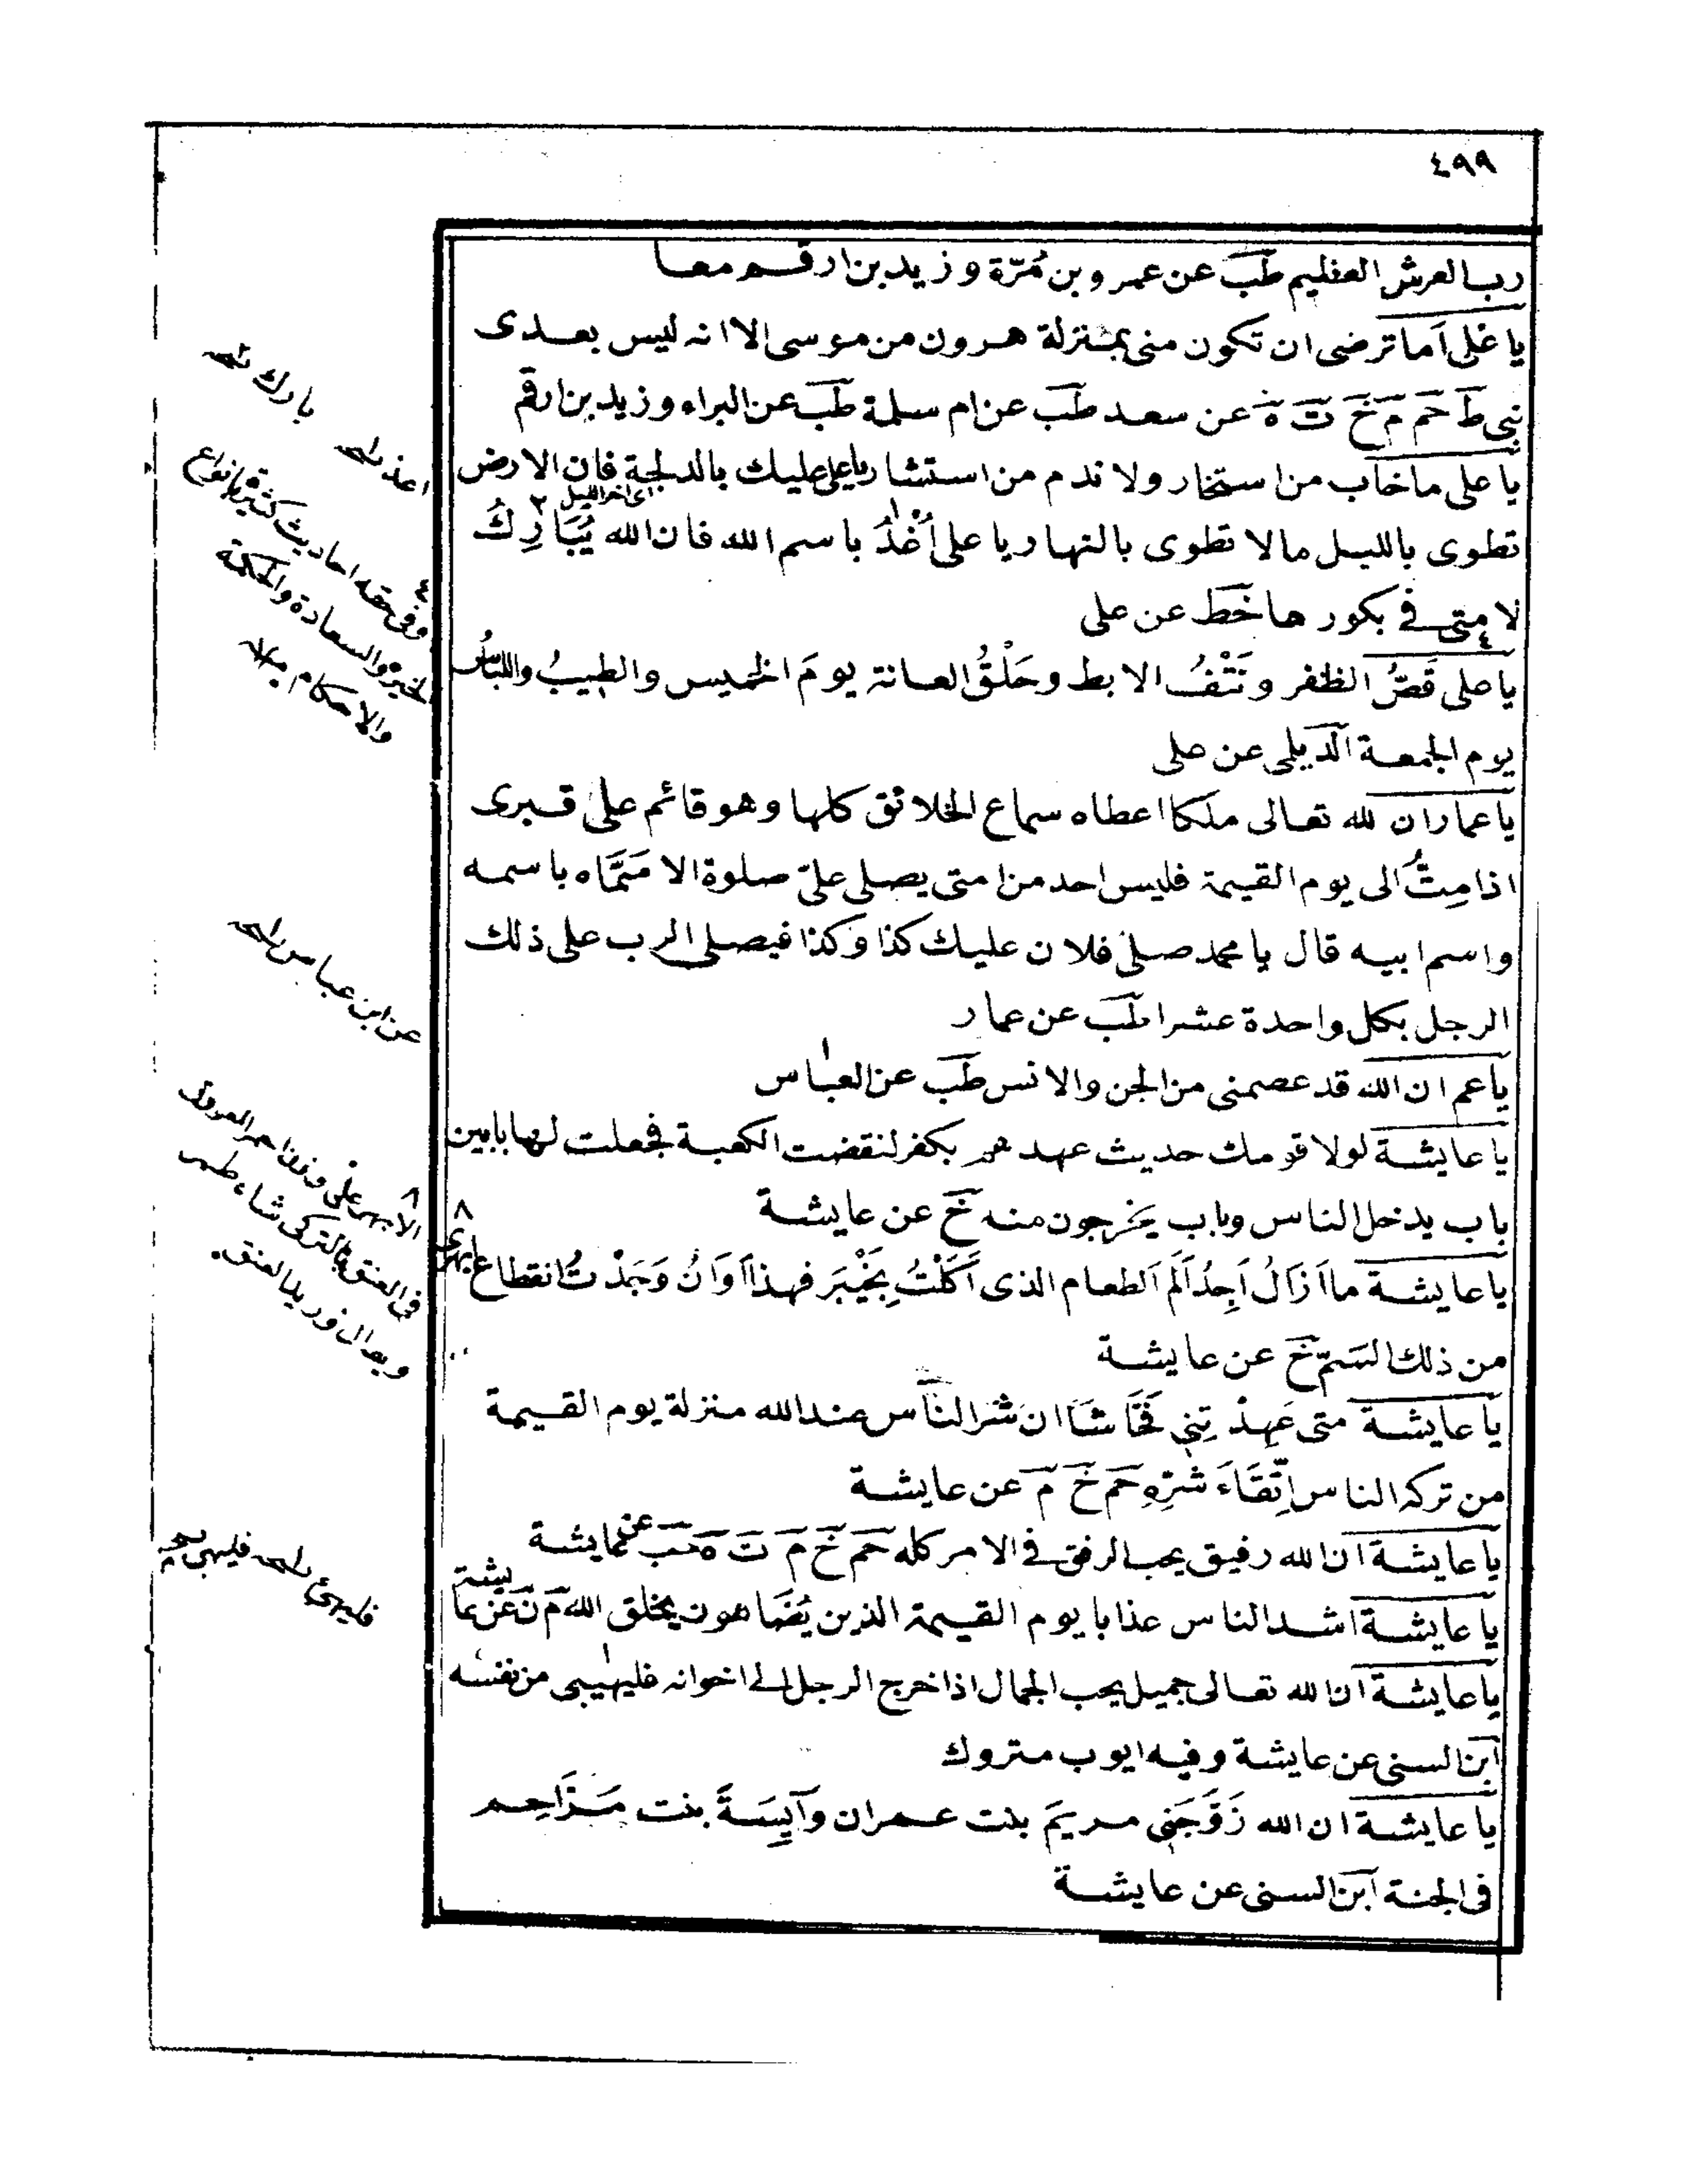 ٤٩٩
رب العرش العظيم طب عن عمرو بن مُرّة وزيد بن ارقم معا
يا على اَما ترضى ان تكون منى بمنزلة هرون من موسى الا انه ليس بعدى
نبى ط حم م خ ت ه عن سعد طب عن ام سلمة طب عن البراء وزيد بن ارقم
يا على ما خاب من استخار ولا ندم من استشار يا على عليك بالدلجة فان الارض
اى اخر الليل ٢
تطوى بالليل مالا تطوى بالنهار يا على اُغْذُ باسم الله فان الله يُبَارِكُ
لامتى فى بكورها خط عن على
٤
يا على قَصُّ الظفر ونَتْفُ الابط وحَلْقُ العانة يومَ الخميس والطيبُ واللباسُ
يوم الجمعة الديلمى عن على
يا عمار ان لله تعالى ملكا اعطاه سماع الخلائق كلها وهو قائم على قبرى
اذا مِتُّ الى يوم القيمة فليس احد من امتى يصلى علىّ صلوة الا سَمَّاه باسمه
واسم ابيه قال يا محمد صلى فلان عليك كذا وكذا فيصلى الرب على ذلك
الرجل بكل واحدة عشرا طب عن عمار
يا عم ان الله قد عصمنى من الجن والانس طب عن العباس
يا عايشة لولا قومك حديث عهدهم بكفر لنقضت الكعبة فجعلت لها بابين
باب يدخل الناس وباب يخرجون منه خ عن عايشة
يا عايشة ما اَزَالُ اَجِدُ اَلَمَ الطعام الذى اَكَلْتُ بِخَيْبَرَ فهذا اَوَانُ وَجَدْتُ انقطاع ابهرى ٨
من ذلك السَمّ خ عن عايشة
يا عايشة متى عَهِدْتِنِى فَحَّاشًا ان شر الناس عند الله منزلة يوم القيمة
من تركه الناس اِتِّقَاءَ شَرِّهِ حم خ م عن عايشة
يا عايشة ان الله رفيق يحب الرفق فى الامر كله حم خ م ت ه حب عن عايشة
يا عايشة اشد الناس عذابا يوم القيمة الذين يُضَاهون بخلق الله م ن عن عايشة
يا عايشة ان الله تعالى جميل يحب الجمال اذا خرج الرجل الى اخوانه فليهيئ من نفسه
ابن السنى عن عايشة وفيه ايوب متروك
يا عايشة ان الله زَوَّجَنِى مريمَ بنت عمران وآسِيَةَ بنت مَزَاحِم
فى الجنة ابن السنى عن عايشة
بارك
اغذ
٤ وفى حقه احاديث كثيرة بانواع
الخير والسعادة والحكمة
والاحكام
عن ابن عباس
٨ الابهر
فى العنق بالتركى شاه طمر
ويقال وريد العنق
فليهيئ